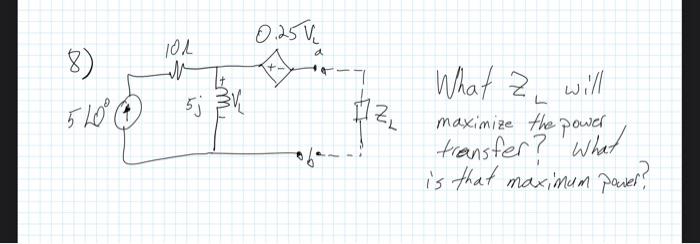 8)
10Ω
0.25 V_L
a
+ -
5∠0°
5j
+
V_L
Z_L
b
What Z_L will
maximize the power
transfer? What
is that maximum power?